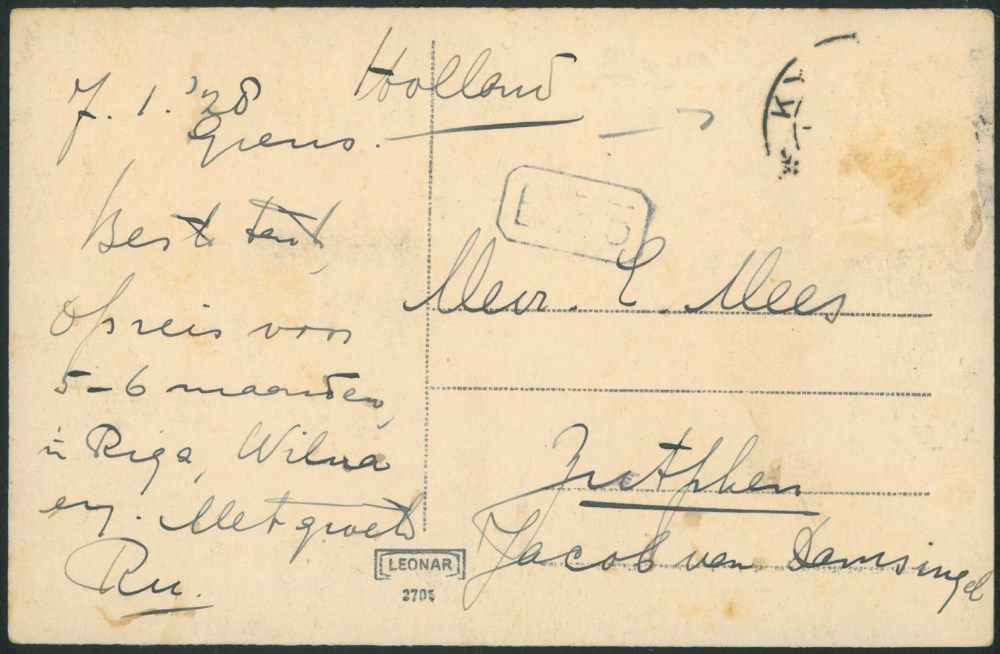 7. 1. '28
Grens.
Beste tant,
Op reis voor
5-6 maanden,
in Riga, Wilna
enz. Met groet
Ru.
Holland
Mevr. E. Mees
Zutphen
Jacob van Damsingel
LEONAR
2705